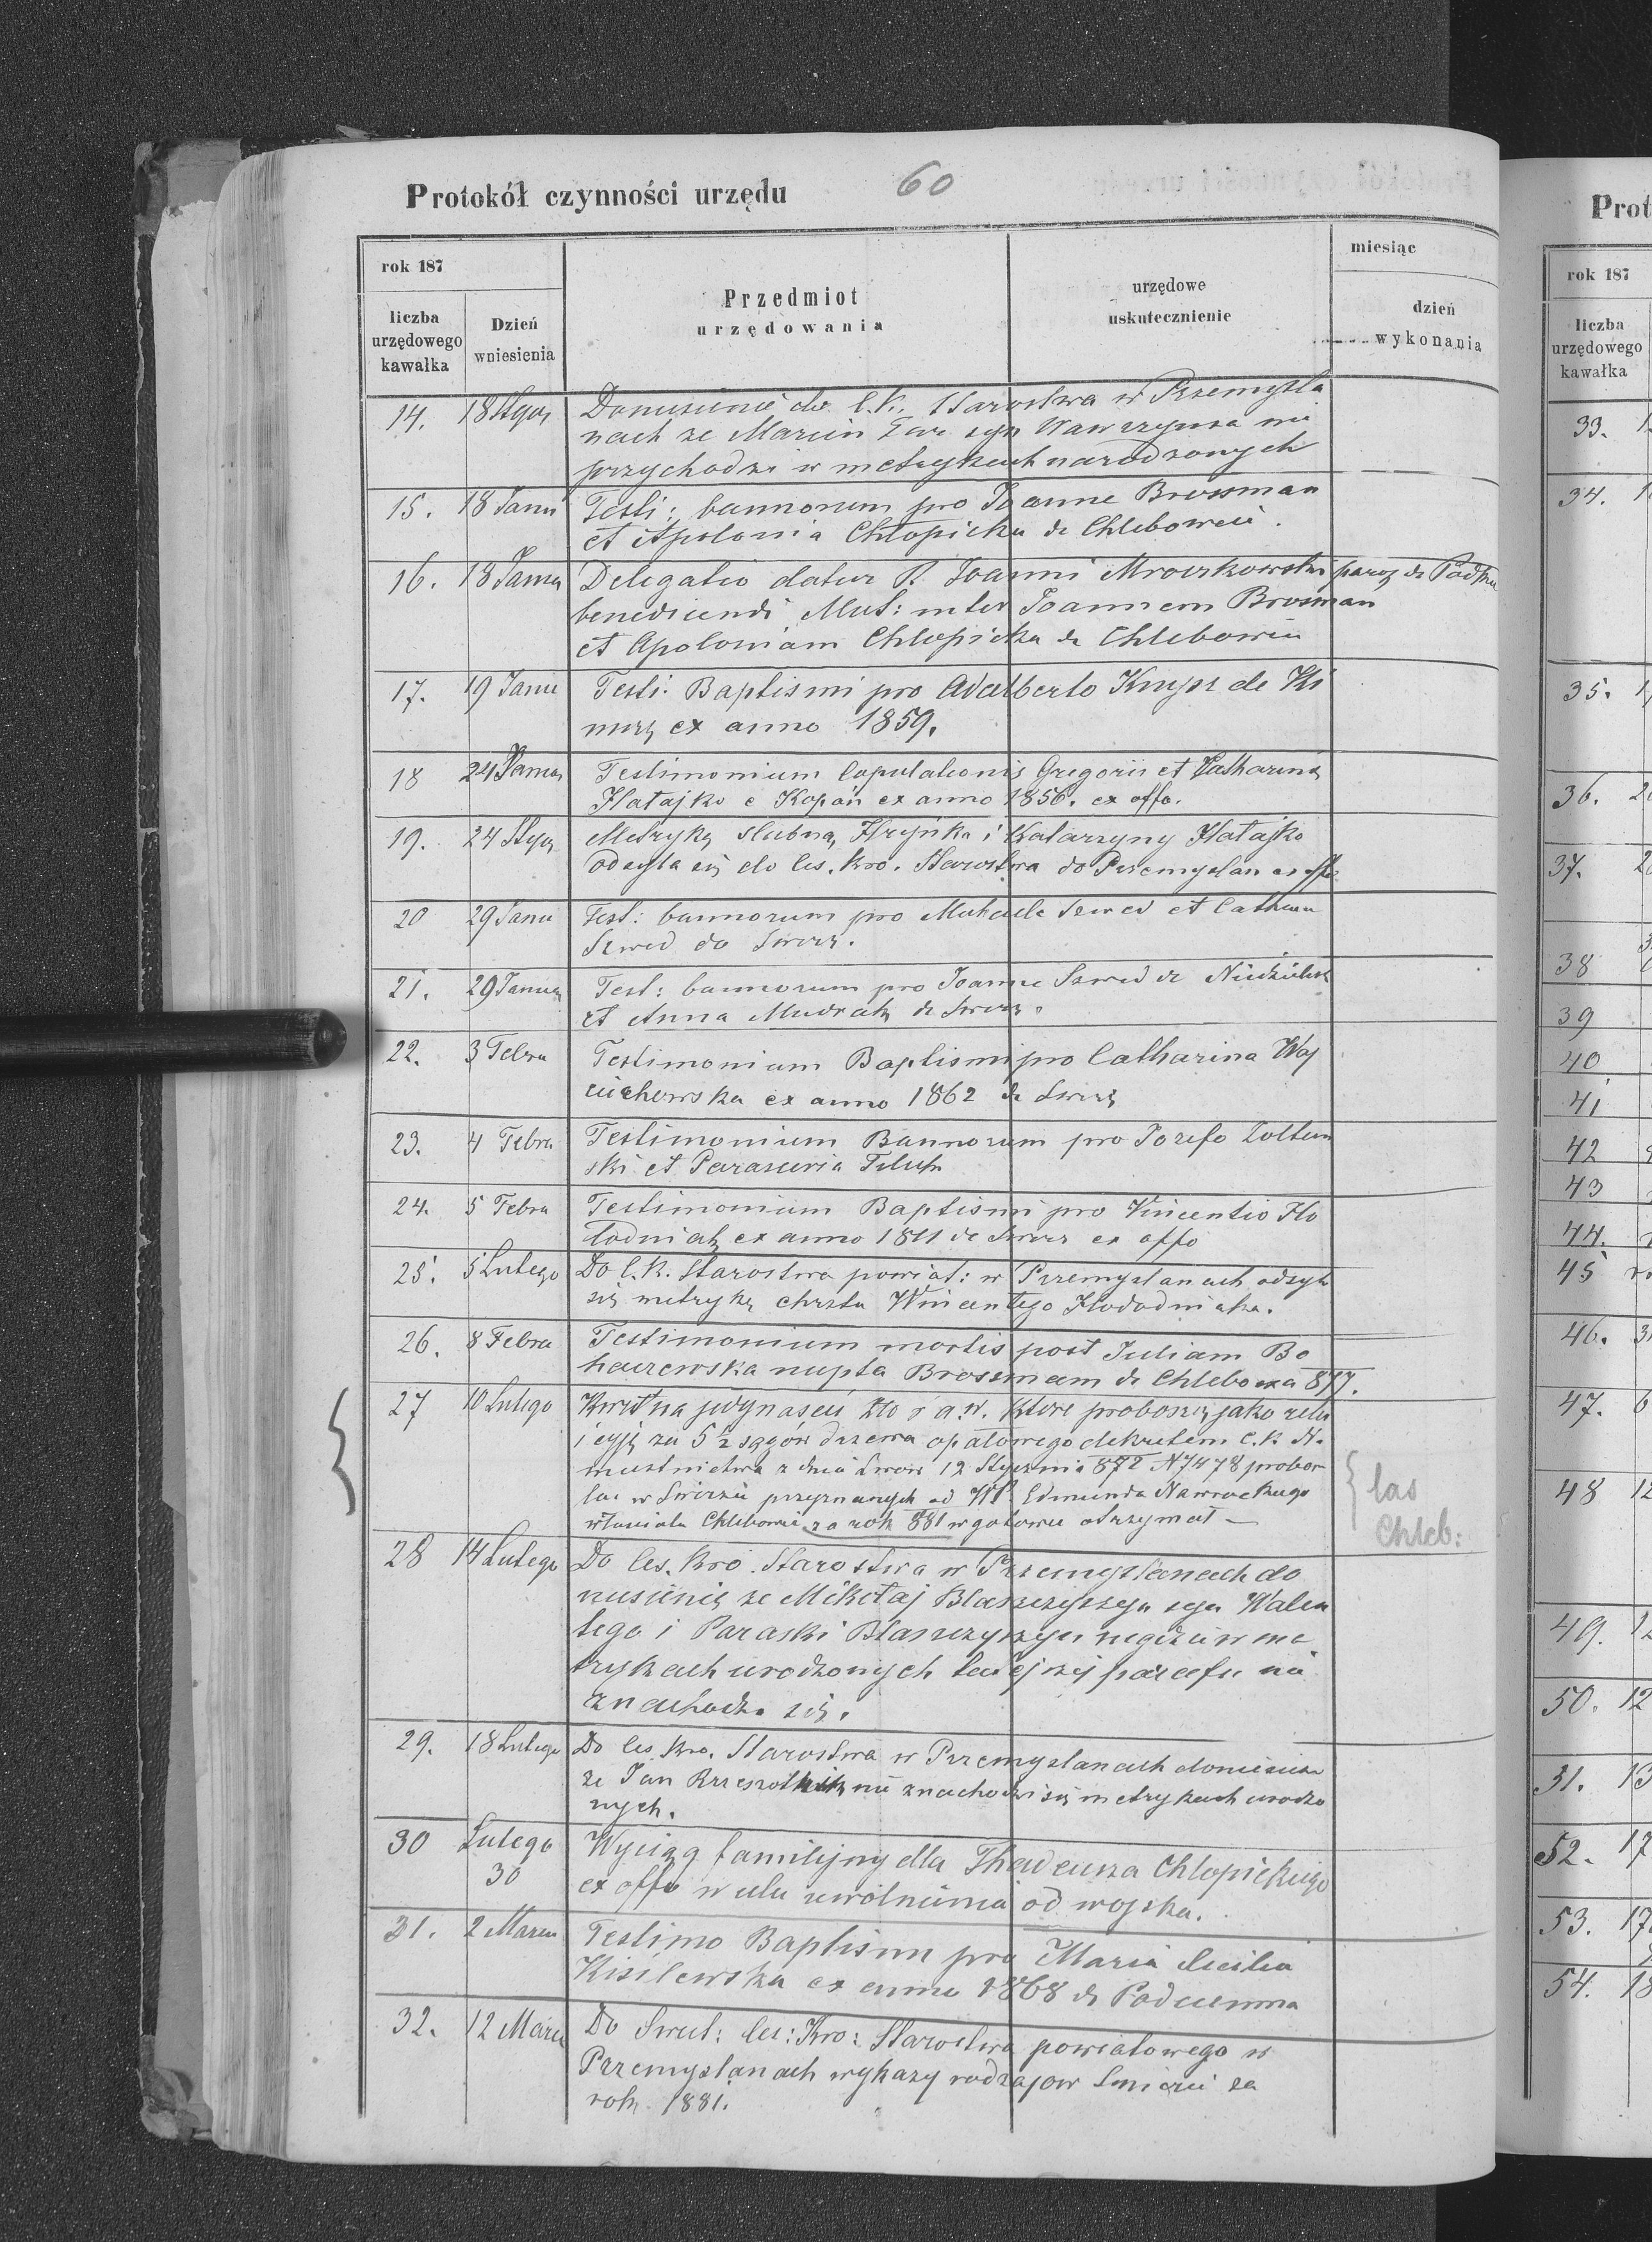 Protokół czynności urzędu
60
rok 187
liczba urzędowego kawałka
Dzień wniesienia
Przedmiot urzędowania
urzędowe uskutecznienie
miesiąc
dzień wykonania
14. 18 Stycz Doniesienie do C.K. Starostwa w Przemyśla
nach ze Marcin syn Wawrzynca nie
przychodzi w metrykach narodzonych
15. 18 Janu Testi: bannorum pro Joanne Brossman
et Apolonia Chłopicka de Chlebowice.
16. 18 Janua Delegatio datur R. Joanni Mroczkowski paroch de
benedicendi Mat: inter Joannem Brosman
et Apoloniam Chlopicka de Chlebowice
17. 19 Janu Testi. Baptismi pro Adalberto de Ki
mirz ex anno 1859.
18 24 Janua Testimonium Copulationis Gregorii et Catharina
Hatajko e Kopań ex anno 1856. ex offo.
19. 24 Stycz Metrykę slubną Hryńka i Katarzyny Hatajko
odsyła się do ces. kro. Starostwa do Przemyslan ex offo
20 29 Janu Test: bannorum pro Michaele Szwed et Catharina
Szwed do Swirz.
21. 29 Januar Test: bannorum pro Joanne Szwed de
et Anna Mudrak de Swirz.
22. 3 Febru Testimonium Baptismi pro Catharina Woj
ciechowska ex anno 1862 de Swirz
23. 4 Febru Testimonium Bannorum pro Josefo Zoltan
ski et Parascevia
24. 5 Febru Testimonium Baptismi pro Vincentio Ho
łodniak ex anno 1811 de Swirz ex offo
25. 5 Lutego Do C.K. Starostwa powiat: w Przemyslanach odsyła
się metrykę chrztu Wincentego Hołodniaka.
26. 8 Febru Testimonium mortis post Juliam Bo
harewska nupta Brossmam de Chlebowice 877.
27 10 Lutego Kwit na jedynascie Zło w. a. które proboszcz jako relu
icyję za 5 1/2 sągów drzewa opałowego dekretem C.K. N.
miestnictwa z dnia Lwow 12 Stycznia 872 N 7478 probos
twu w Swirzu przyznanych od WP. Edmunda Nawrockiego
właściciela Chlebowic za rok 881 w gotowce otrzymał —
las
Chleb:
28 14 Lutego Do ces. kro. Starostwa w Przemyslanach do
niesienie ze Mikołaj Blaszczyszyn syn Walen
tego i Paraski Blaszczyszyn nigdzie w me
trykach urodzonych tutejszej parafii nie
znachodzi się.
29. 18 Lutego Do ces. kro. Starostwa w Przemyslanach doniesienie
ze Jan nie znachodzi się metrykach urodzo
nych.
30 Lutego 30 Wyciąg familijny dla Thadeusza Chlopickiego
ex offo w celu uwolnienia od wojska.
31. 2 Marca Testimo Baptismi pro Maria Cecilia
Kisilewska ex anno 1868 de Podusmna
32. 12 Marca Do Swiet: Ces: Kro: Starostwa powiatowego w
Przemyslanach wykazy rodzajow smierci za
rok 1881.
Prot
rok 187
liczba urzędowego kawałka
33.
34.
35.
36.
37.
38
39
40
41
42
43
44.
45
46.
47.
48
49.
50.
51.
52.
53.
54.